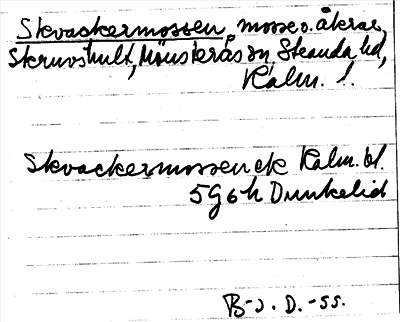 Skvackermossen, mosse o. åkrar,
Skruvshult, Mönsterås sn, Stranda hd,
Kalm. l.
Skvackermossen ek Kalm. bl.
5G6h Dunkelid
B-s. D. -55.